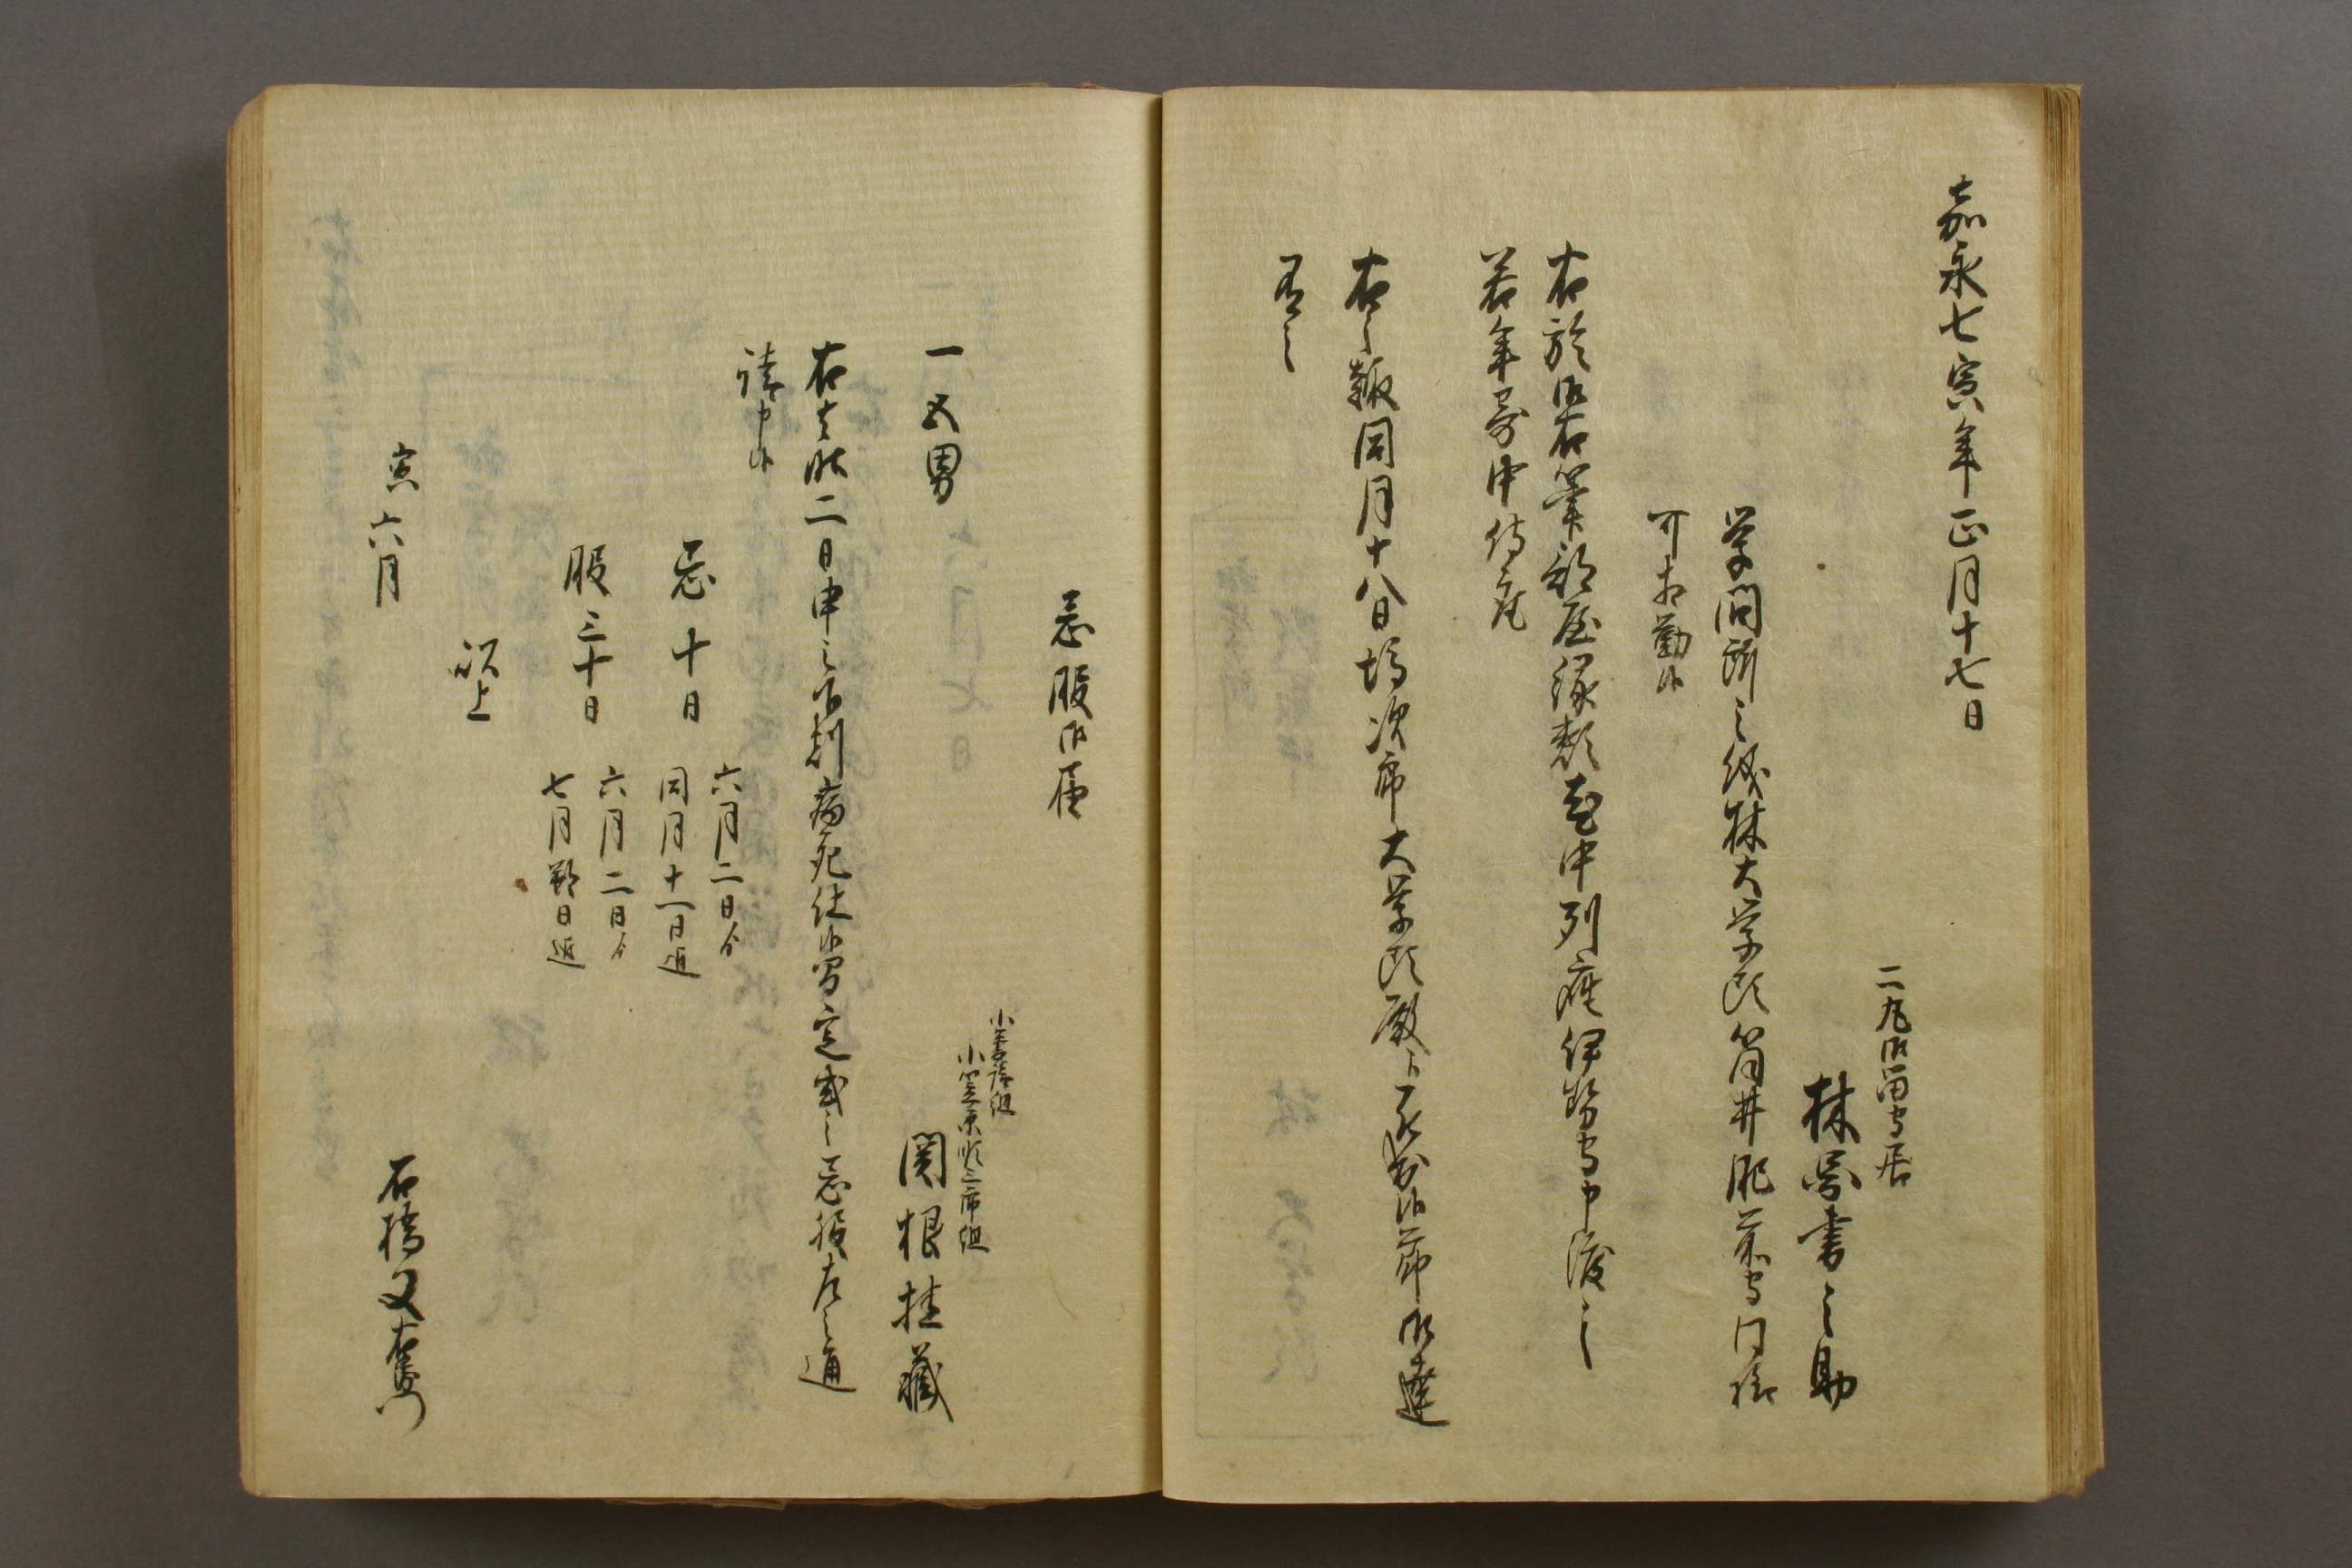 嘉永七寅年正月十七日
二丸御留守居
林図書之助
学問所之儀林大学頭筒井肥前守同様
可相勤候
右於御右筆部屋縁頬老中列座伊勢守申渡之
若年寄中侍座
右之趣同月十八日場次席大学頭殿被成候節御達
有之
忌服御届
小普請組
小笠原順三郎組
関根桂蔵
一五男
右者昨二日申之后刻病死仕候間定式之忌服左之通
請申候
忌十日
六月二日ゟ
同月十一日迄
服三十日
六月二日ゟ
七月朔日迄
以上
寅六月
石橋又右衛門